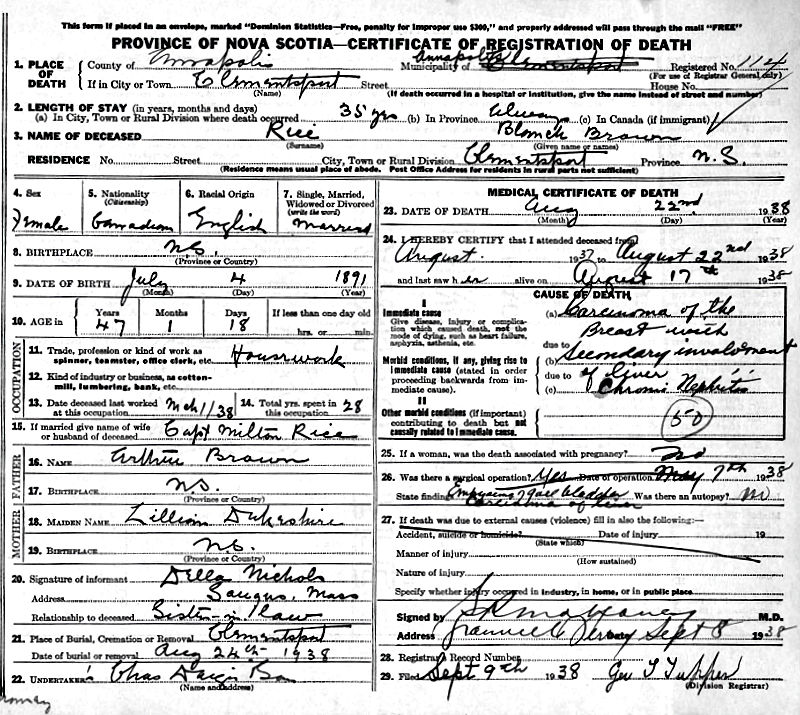 This form if placed in an envelope, marked "Dominion Statistics—Free, penalty for improper use $300," and properly addressed will pass through the mail "FREE"
PROVINCE OF NOVA SCOTIA—CERTIFICATE OF REGISTRATION OF DEATH
1. PLACE OF DEATH County of Annapolis Municipality of Annapolis Clementsport Registered No. 114
(For use of Registrar General only)
If in City or Town Clementsport Street House No.
(Name) (If death occurred in a hospital or institution, give the name instead of street and number)
2. LENGTH OF STAY (in years, months and days)
(a) In City, Town or Rural Division where death occurred 35 yrs (b) In Province Always (c) In Canada (if immigrant)
3. NAME OF DECEASED Rice Blanch Brown
(Surname) (Given name or names)
RESIDENCE No. Street City, Town or Rural Division Clementsport Province N.S.
(Residence means usual place of abode. Post Office Address for residents in rural parts not sufficient)
4. Sex Female
5. Nationality (Citizenship) Canadian
6. Racial Origin English
7. Single, Married, Widowed or Divorced (write the word) Married
8. BIRTHPLACE N.S.
(Province or Country)
9. DATE OF BIRTH July 4 1891
(Month) (Day) (Year)
10. AGE in Years 47 Months 1 Days 18 If less than one day old hrs. or min.
OCCUPATION
11. Trade, profession or kind of work as spinner, teamster, office clerk, etc. Housework
12. Kind of industry or business, as cotton-mill, lumbering, bank, etc.
13. Date deceased last worked at this occupation Mch 1/38 14. Total yrs. spent in this occupation 28
15. If married give name of wife or husband of deceased Capt Milton Rice
FATHER
16. NAME Arthur Brown
17. BIRTHPLACE N.S.
(Province or Country)
MOTHER
18. MAIDEN NAME Lillian Dukeshire
19. BIRTHPLACE N.S.
(Province or Country)
20. Signature of informant Della Nichols
Address Saugus, Mass
Relationship to deceased Sister in law
21. Place of Burial, Cremation or Removal Clementsport
Date of burial or removal Aug 24th 1938
22. UNDERTAKER'S Chas
(Name and address)
MEDICAL CERTIFICATE OF DEATH
23. DATE OF DEATH Aug 22nd 1938
(Month) (Day) (Year)
24. I HEREBY CERTIFY that I attended deceased from
August 1937 to August 22nd 1938
and last saw her alive on August 17th 1938
CAUSE OF DEATH
I
Immediate cause
Give disease, injury or complication which caused death, not the mode of dying, such as heart failure, asphyxia, asthenia, etc.
Morbid conditions, if any, giving rise to immediate cause (stated in order proceeding backwards from immediate cause).
II
Other morbid conditions (if important) contributing to death but not causally related to immediate cause.
(a) Carcinoma of the
Breast with
due to
(b) Secondary involvment
due to of liver
(c) Chronic Nephritis
50
25. If a woman, was the death associated with pregnancy? no
26. Was there a surgical operation? Yes Date of operation May 7th 1938
State finding Empyema gall bladder Was there an autopsy? no
Carcinoma of liver
27. If death was due to external causes (violence) fill in also the following:—
Accident, suicide or homicide? Date of injury 19
(State which)
Manner of injury
(How sustained)
Nature of injury
Specify whether injury occurred in industry, in home, or in public place
Signed by M.D.
Address Sept 8 1938
28. Registrar's Record Number
29. Filed Sept 9th 1938 Geo T Tupper
(Division Registrar)